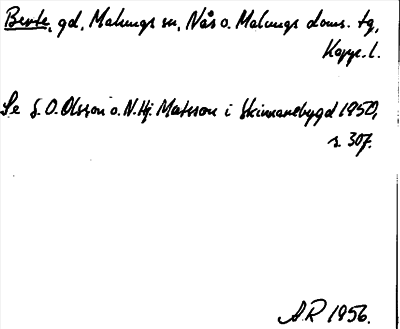 Berte, gd, Malungs sn, Nås o. Malungs doms. tg,
Kopp. l.
Se S. O. Olsson o. N. Hj. Matsson i Skinnarebygd 1950,
s. 307.
A.R 1956.